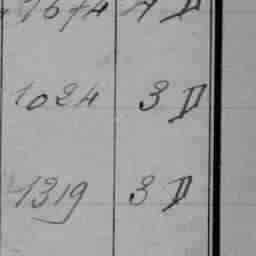 1024 3 D
1319 3 D